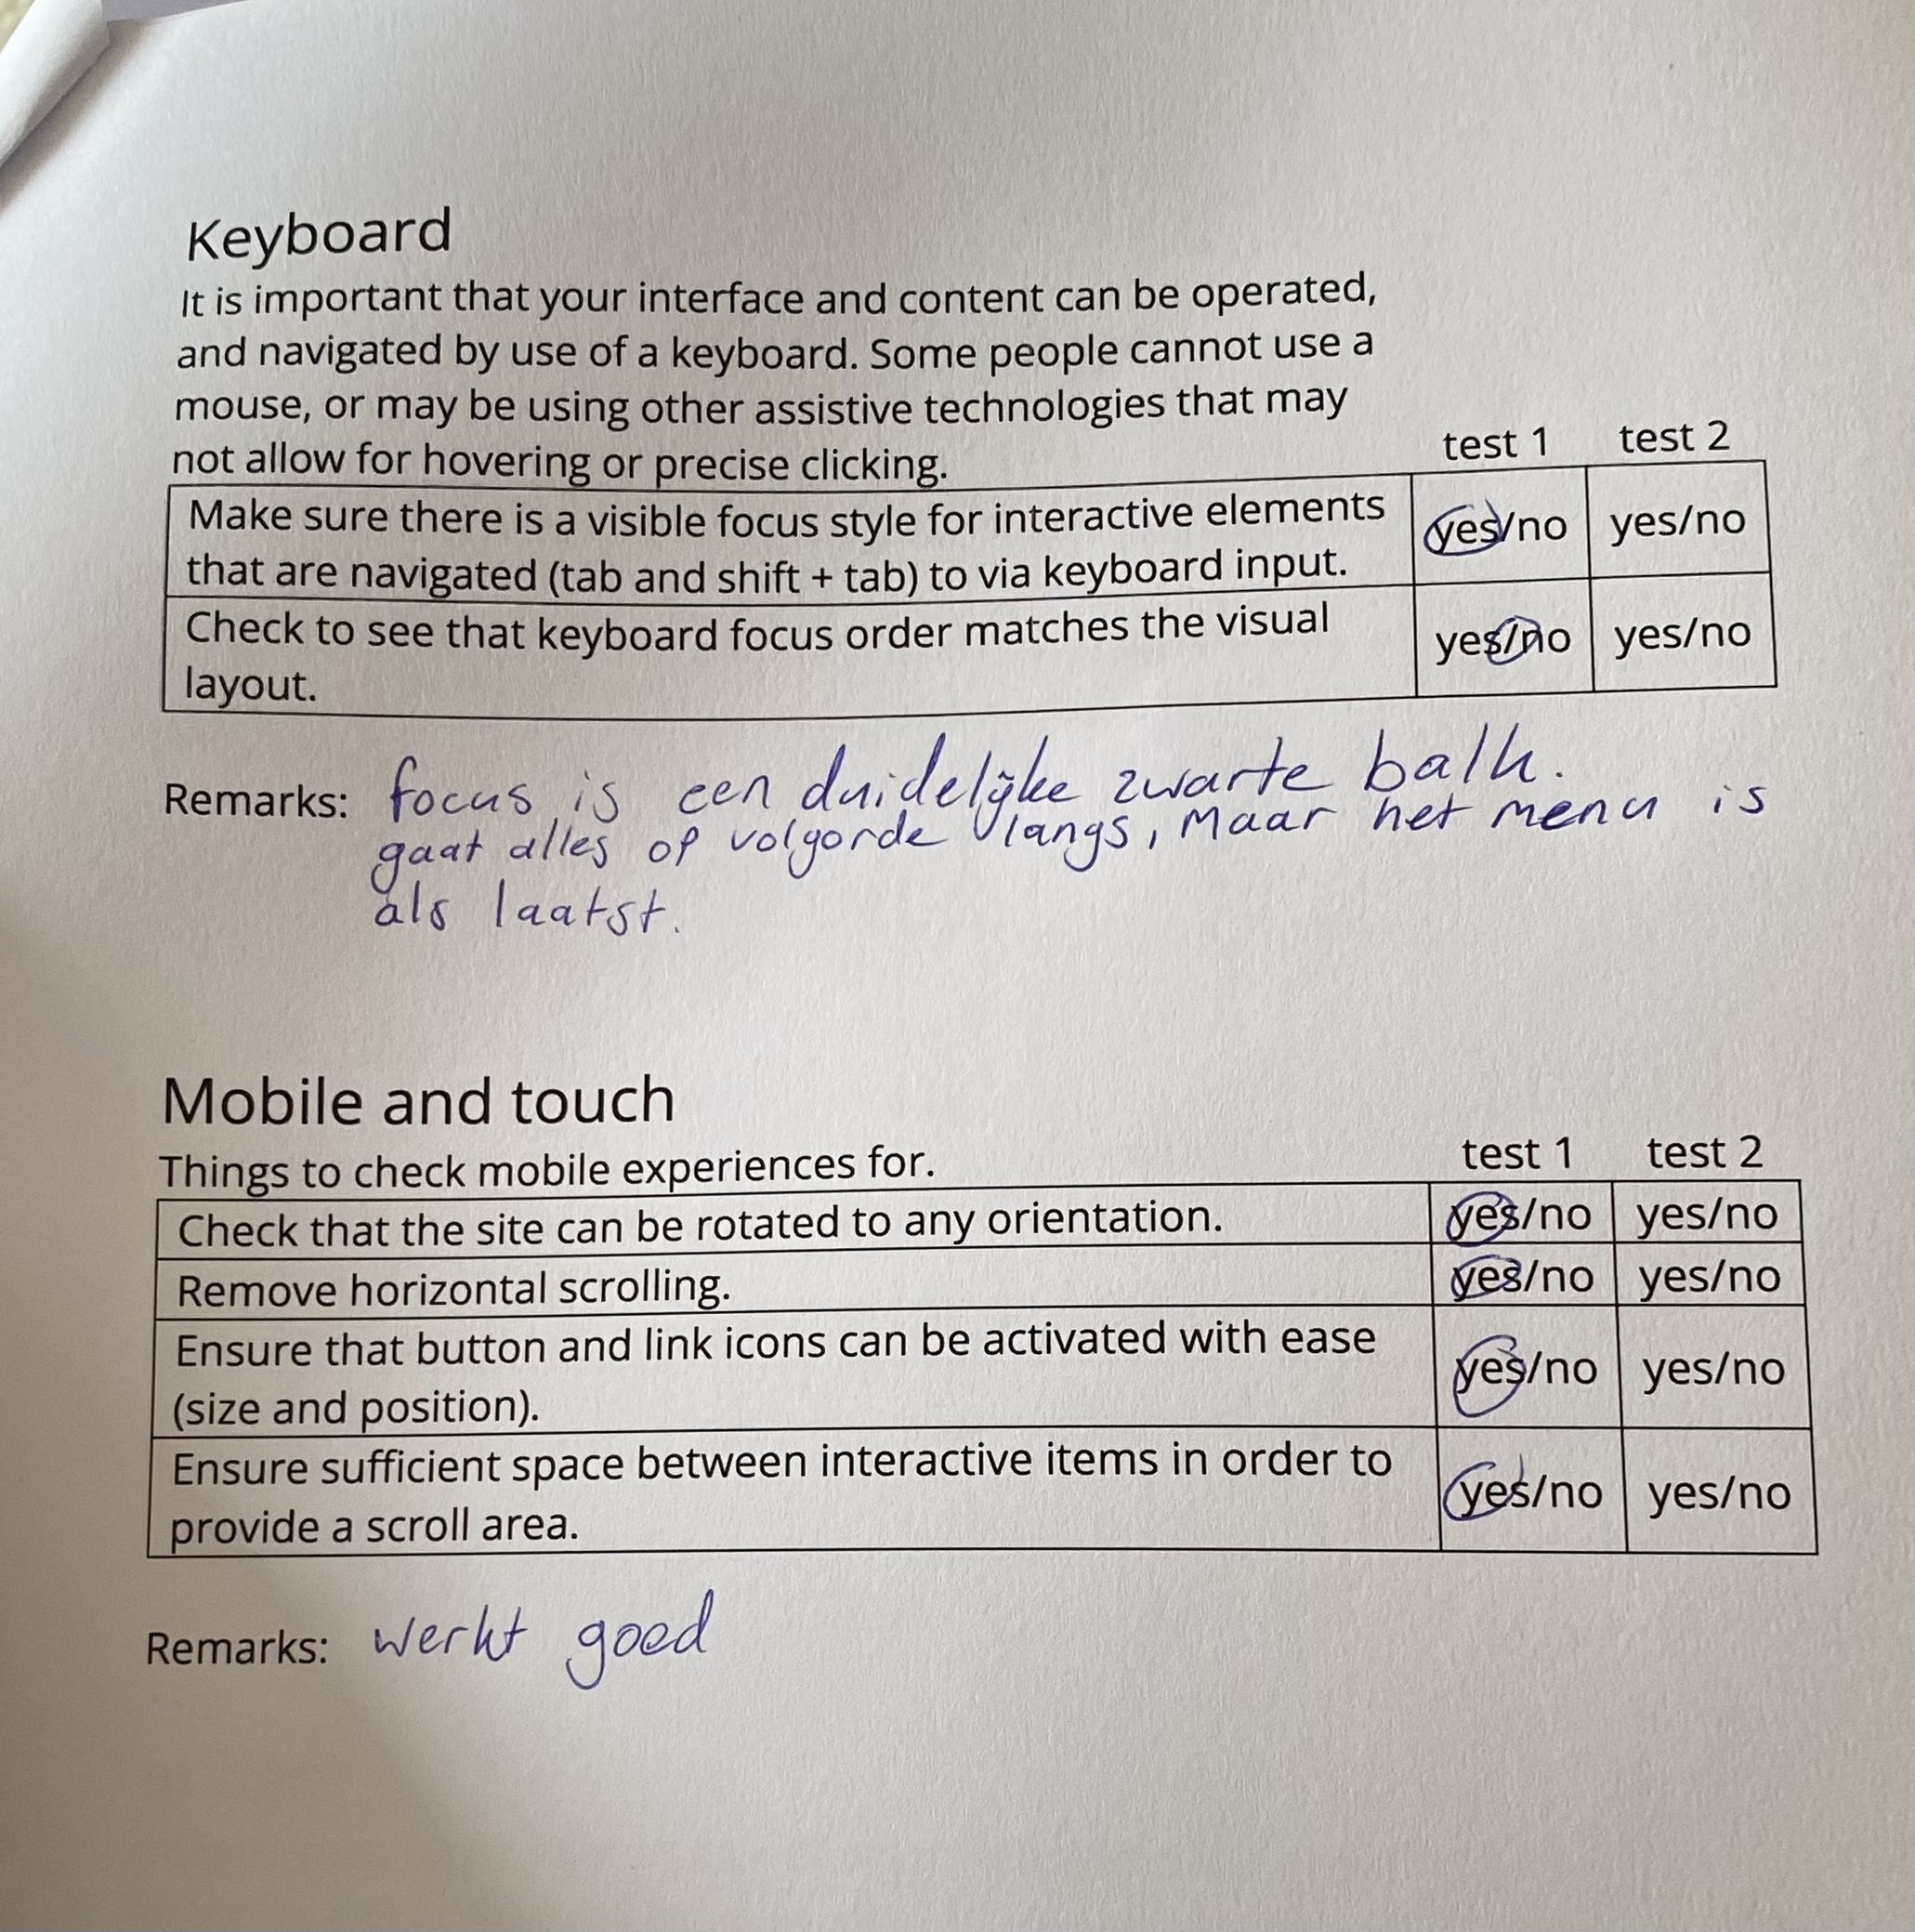 Keyboard
It is important that your interface and content can be operated,
and navigated by use of a keyboard. Some people cannot use a
mouse, or may be using other assistive technologies that may
not allow for hovering or precise clicking.
test 1 test 2
Make sure there is a visible focus style for interactive elements
that are navigated (tab and shift + tab) to via keyboard input.
yes/no yes/no
Check to see that keyboard focus order matches the visual
layout.
yes/no yes/no
Remarks: focus is een duidelijke zwarte balk.
gaat alles op volgorde langs, maar het menu is
als laatst.
Mobile and touch
Things to check mobile experiences for.
test 1 test 2
Check that the site can be rotated to any orientation. yes/no yes/no
Remove horizontal scrolling. yes/no yes/no
Ensure that button and link icons can be activated with ease
(size and position).
yes/no yes/no
Ensure sufficient space between interactive items in order to
provide a scroll area.
yes/no yes/no
Remarks: werkt goed